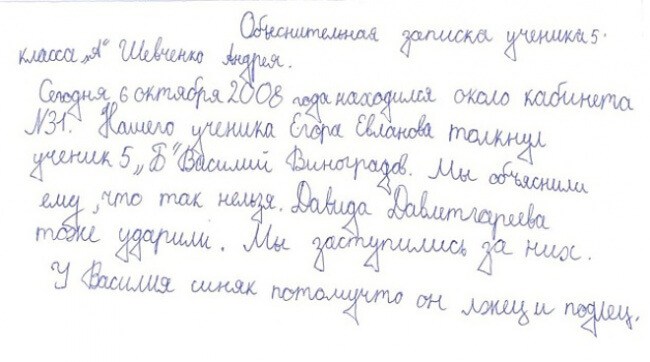 Объеснительная записка ученика 5.
класса „А" Шевченко Андрея.
Сегодня 6 октября 2008 года находился около кабинета
№31. Нашего ученика Егора Евланова толкнул
ученик 5 „Б" Василий Виноградов. Мы объяснили
ему, что так нельзя. Давида Давлетгареева
тоже ударили. Мы заступились за них.
У Василия синяк потомучто он лжец и подлец.